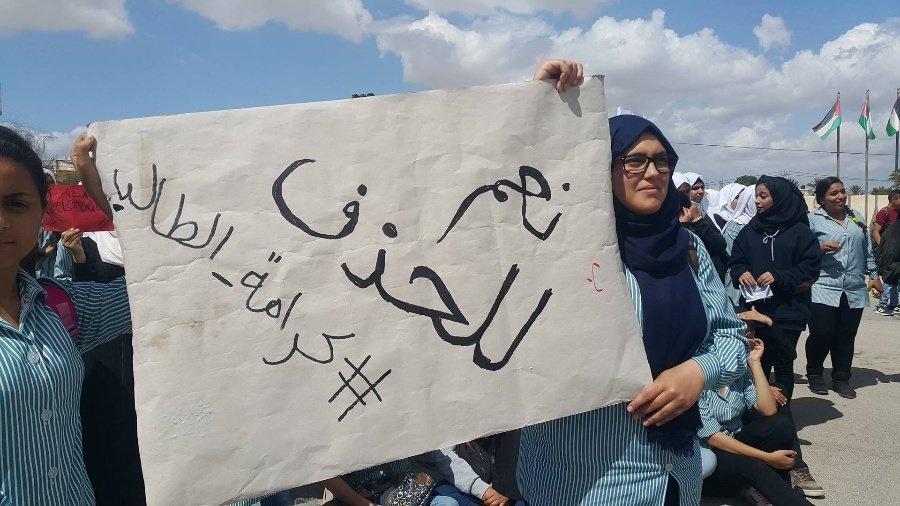 نعم
للحذف
#كرامة_الطالب